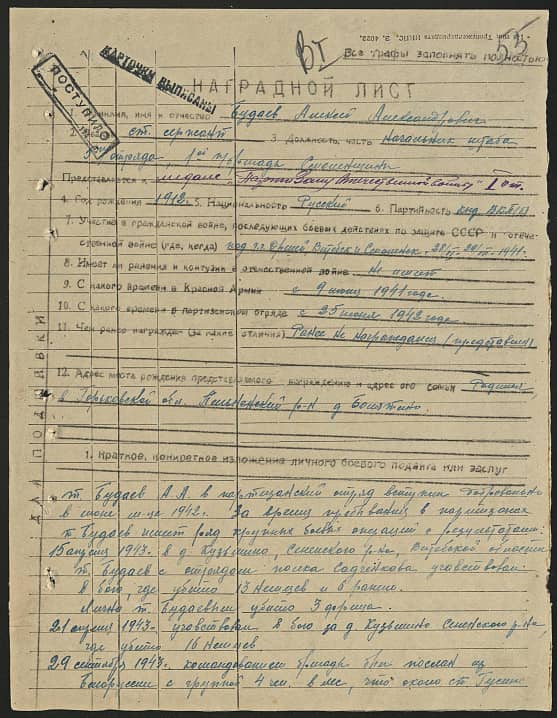 Тип. Трансжелдориздата НКПС, З. 4022.
ВI
55
Все графы заполнять полностью
КАРТОЧКИ ВЫПИСАНЫ
ПОСТУПИЛО
НАГРАДНОЙ ЛИСТ
1. Фамилия, имя и отчество Будаев Алексей Александрович
ст. сержант 3. Должность, часть Начальник штаба
отряда, 1ой бригады
Представляется к медаль "Партизану Отечественной войны" I ст.
4. Год рождения 1912 г. 5. Национальность Русский 6. Партийность канд. ВКП(б)
7. Участие в гражданской войне, последующих боевых действиях по защите СССР и отече-
ственной войне (где, когда) под г.г. Оршей, Витебск и Смоленск 1941.
8. Имеет ли ранения и контузии в отечественной войне Не имеет
9. С какого времени в Красной Армии с 9 июня 1941 года.
10. С какого времени в партизанском отряде с 25 июня 1942 года
11. Чем ранее награжден (за какие отличия) Ранее не награждался (представлен)
12. Адрес места рождения представляемого к награждению и адрес его семьи Родился
в Горьковской обл. р-н д.
1. Краткое, конкретное изложение личного боевого подвига или заслуг
т. Будаев А.А. в партизанский отряд вступил добровольно
в июне м-це 1942. За время пребывания в партизанах
т. Будаев имеет ряд крупных боевых операций с результатами:
15 апреля 1943. в д. Кузьмино, Сенненского р-на, Витебской области
т. Будаев с отрядом полка Садчикова участвовал
в бою, где убито 13 немцев и 6 ранено.
Лично т. Будаевым убито 3 фрица.
21 апреля 1943г. участвовал в бою за д. Кузьмино Сенненского р-на,
где убито 16 немцев
29 сентября 1943г. командованием бригады был послан из
Белоруссии с группой 4 чел. в лес, что около ст. Гусино
ДЛЯ ПОДШИВКИ